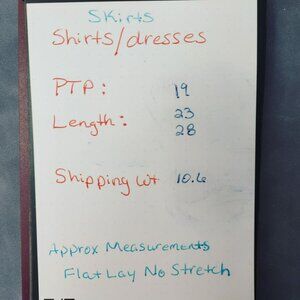 Skirts
Shirts/dresses
PTP: 19
Length: 23
28
Shipping wt 10.6
Approx Measurements
Flat Lay No Stretch